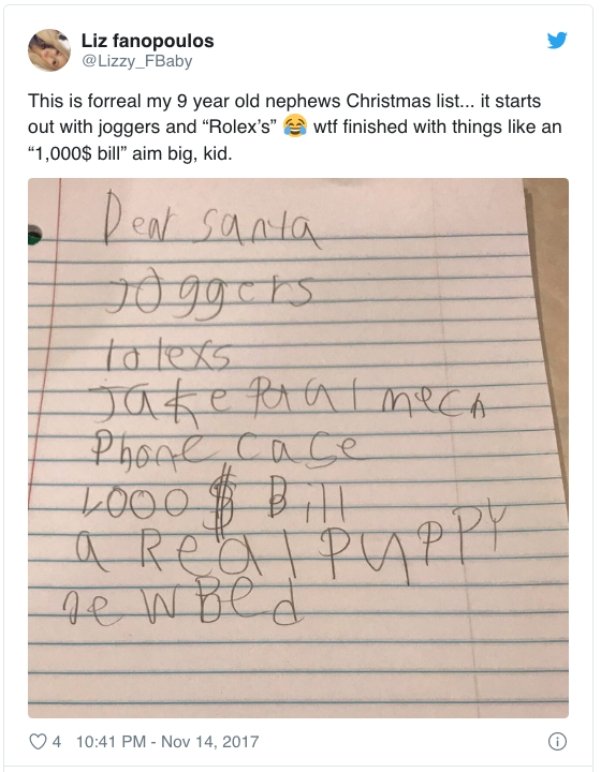 Liz fanopoulos
@Lizzy_FBaby
This is forreal my 9 year old nephews Christmas list... it starts
out with joggers and “Rolex’s” 😂 wtf finished with things like an
“1,000$ bill” aim big, kid.
Dear santa
joggers
rolexs
Jake Paul mech
Phone case
1000 $ Bill
a Real PUPPY
new Bed
4 10:41 PM - Nov 14, 2017